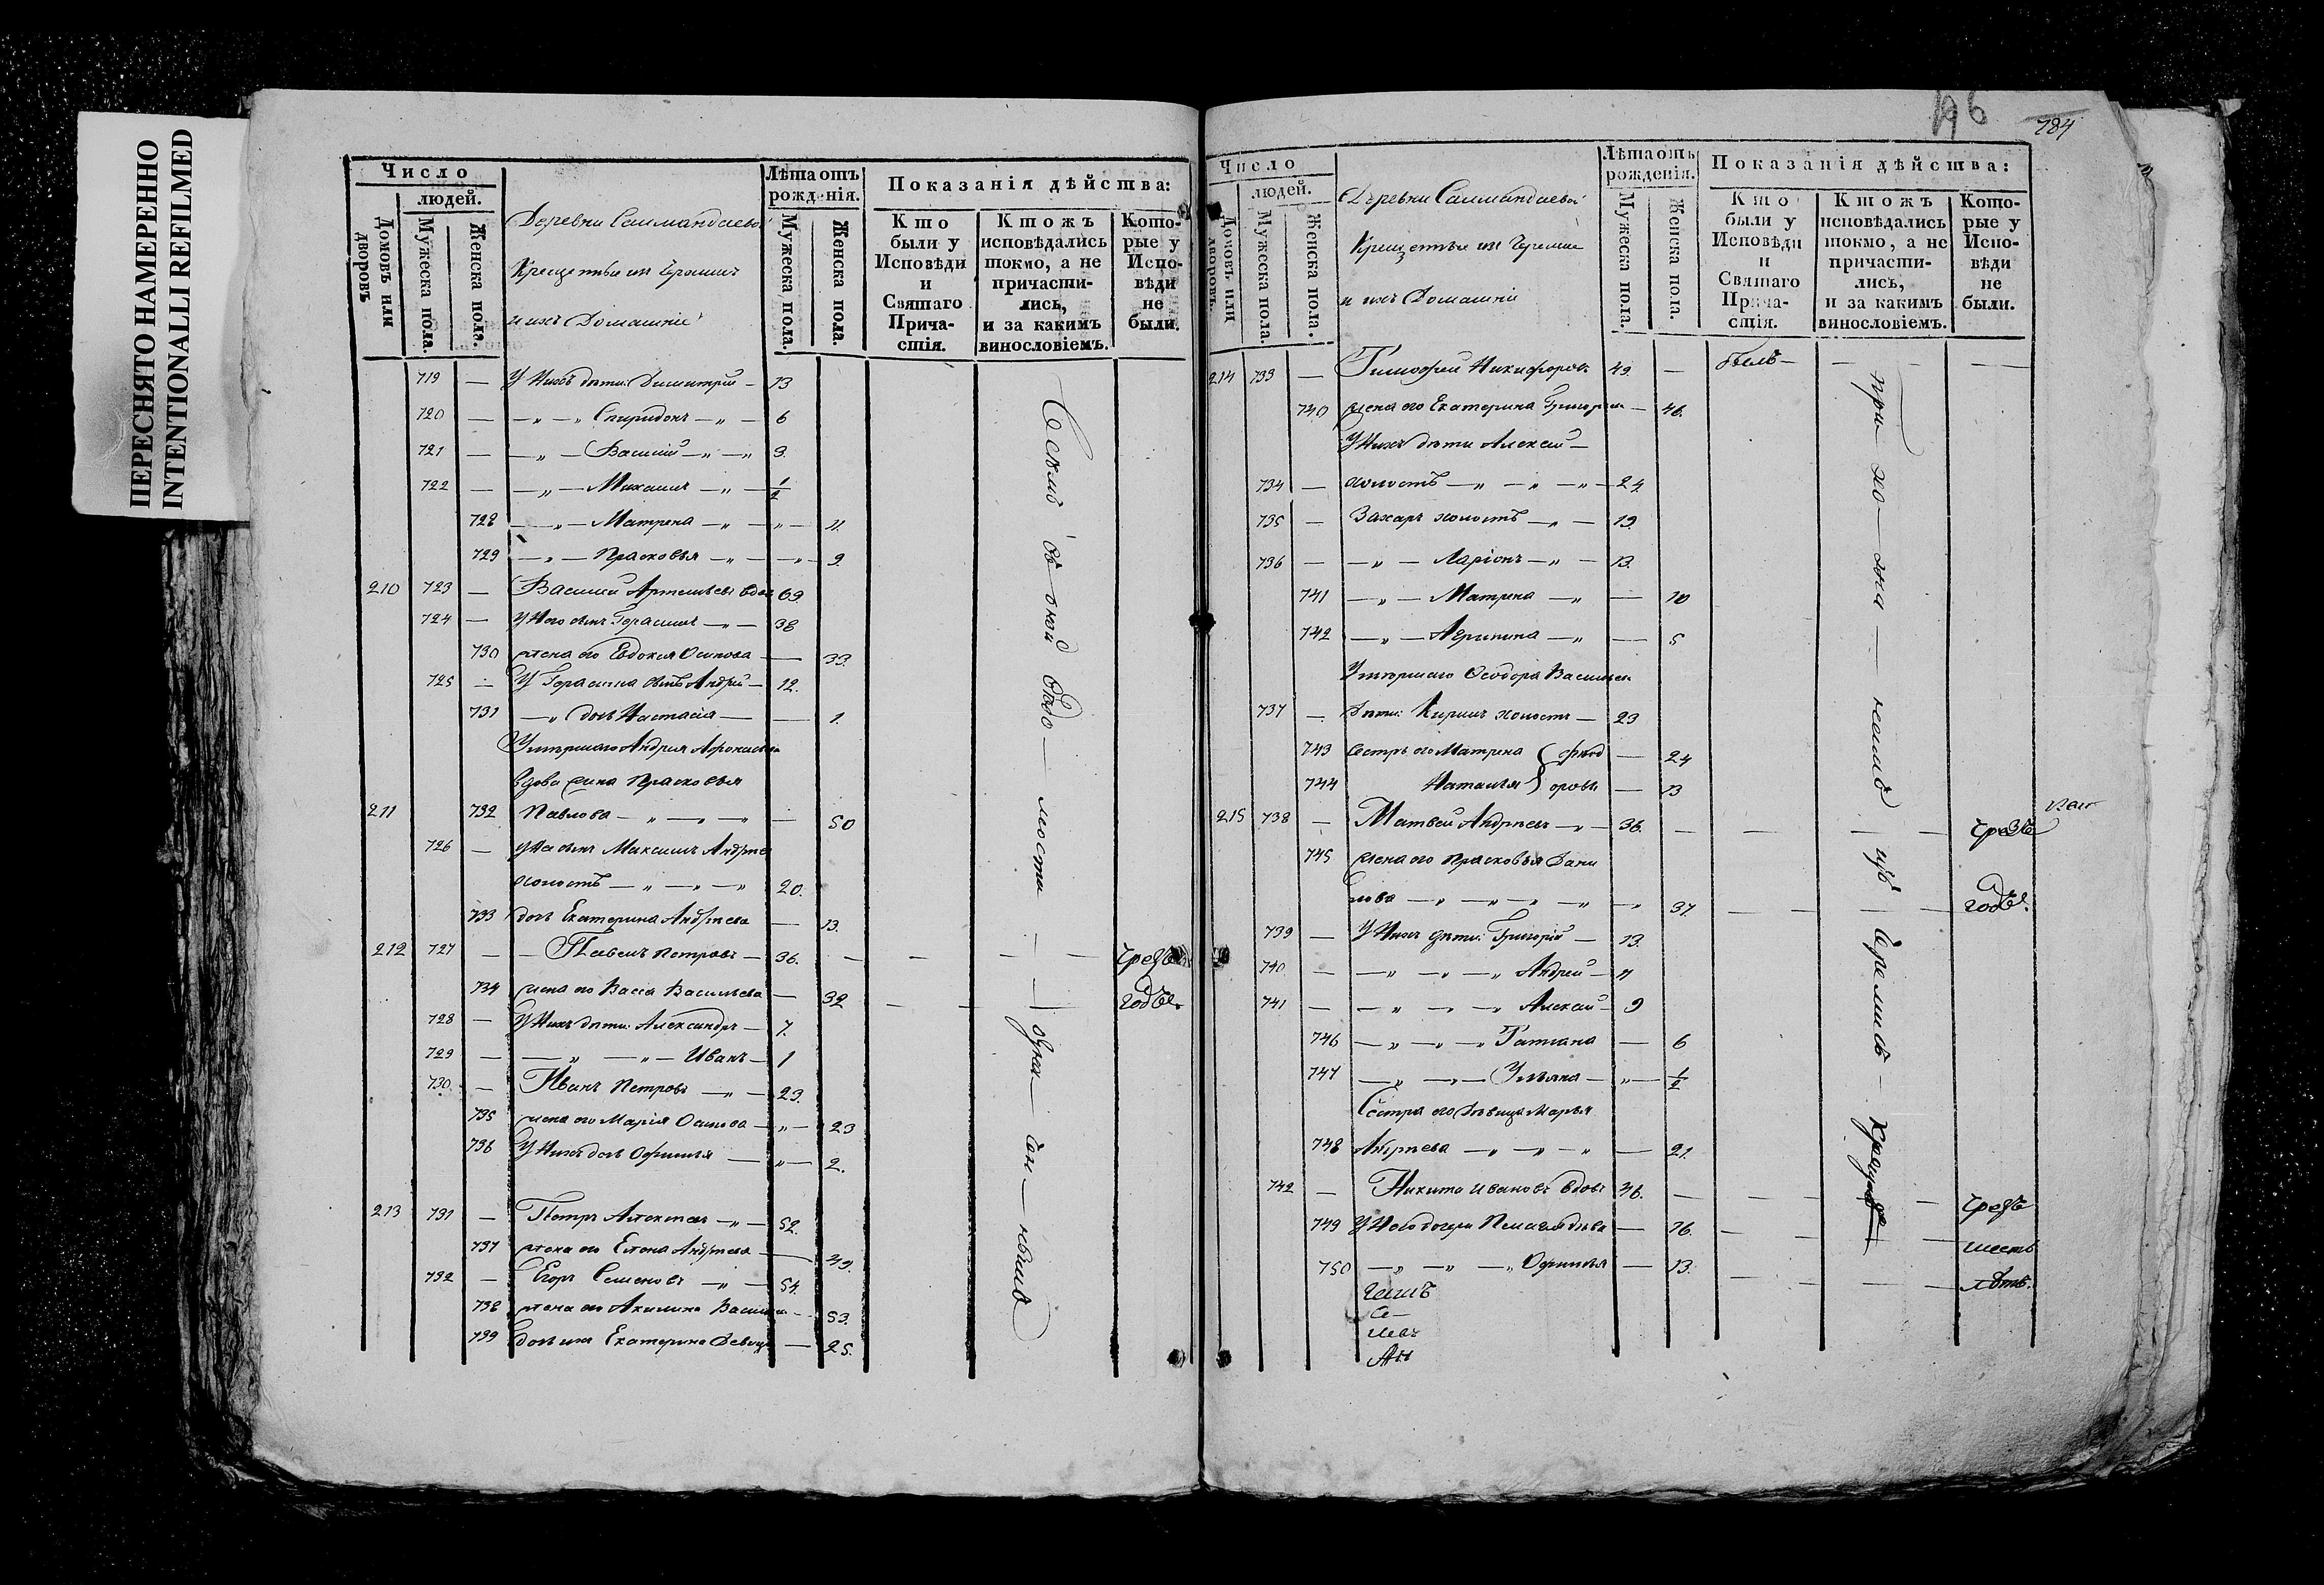 ПЕРЕСНЯТО НАМЕРЕННО
INTENTIONALLI REFILMED
Число
людей.
Домовъ или дворовъ
Мужеска пола.
Женска пола.
Деревни Саимандаевой
Крещеные изъ Черемис
и ихъ Домашніе
Лѣта отъ рожденія.
Мужеска пола.
Женска пола.
Показанія дѣйства:
Кто были у Исповѣди и Святаго Причастія.
Ктожъ исповѣдались токмо, а не причастились, и за какимъ винословіемъ.
Которые у Исповѣди не были.
719 — У Нихъ дѣти: Димитрій — 13
720 — Спиридонъ — 6
721 — Василій — 3.
722 — Михаилъ — 1/2
728 — Матрена — 11.
729 — Прасковья — 9.
210 723 — Василій Артемьевъ вдов 69
724 — У Него сынъ Герасимъ — 38
730 жена его Евдокея Осипова — 33.
725 — У Герасима сынъ Андрей — 12.
731 — дочь Настасія — 1.
Умершаго Андрея Афонасьева
вдова жена Прасковья
211 732 Павлова — 50
726 — у Нея сынъ Максимъ Андрее
холостъ — 20.
733 дочь Екатерина Андреева — 13.
212 727 — Павелъ Петровъ — 36. — чрезъ
734 жена его Васса Васильева — 32 — годъ.
728 — У Нихъ дѣти: Александръ — 7.
729 — Иванъ — 1
730 — Иванъ Петровъ — 23.
735 жена его Марія Осипова — 23
736 У Нихъ дочь Офимья — 2.
213 731 — Петръ Алексеевъ — 52.
737 жена его Елена Андреева — 49.
732 — Егоръ Семеновъ — 54.
738 жена его Акилина Василье — 53.
739 дочь ихъ Екатерина Девица — 25.
196
184
Число
людей.
Домовъ или дворовъ.
Мужеска пола.
Женска пола.
Деревни Саимандаевой
Крещеные изъ Черемис
и ихъ Домашніе
Лѣта отъ рожденія.
Мужеска пола.
Женска пола.
Показанія дѣйства:
Кто были у Исповѣди и Святаго Причастія.
Ктожъ исповѣдались токмо, а не причастились, и за какимъ винословіемъ.
Которые у Исповѣди не были.
214 733 — Тимофей Никифоровъ 49. — былъ —
740 жена его Екатерина Григорьев — 46.
У Нихъ дѣти Алексей —
734 — холостъ — 24.
735 — Захаръ холостъ — 19.
736 — Ларіонъ — 13.
741 — Матрена — 10
742 — Агрипина — 5
Умершаго Феодора Васильев
737 — дѣти: Кирилъ холостъ — 23
743 сестры его Матрена (Феод — 24
744 Наталья) оровы — 13
215 738 — Матвей Андреевъ — 36. — чрезъ
745 жена его Прасковья Дани
лова — 37 — годъ.
739 — У Нихъ дѣти: Григорій — 13.
740 — Андрей — 11
741 — Алексей — 9
746 — Татіана — 6
747 — Ульяна — 1/2
Сестра его Девица Марья
748 Андреева — 21.
742 — Никита Ивановъ вдовъ 46. — чрезъ
749 У Него дочери Пелагея девк — 16. — шесть
750 — Офимья — 13. — лѣтъ.